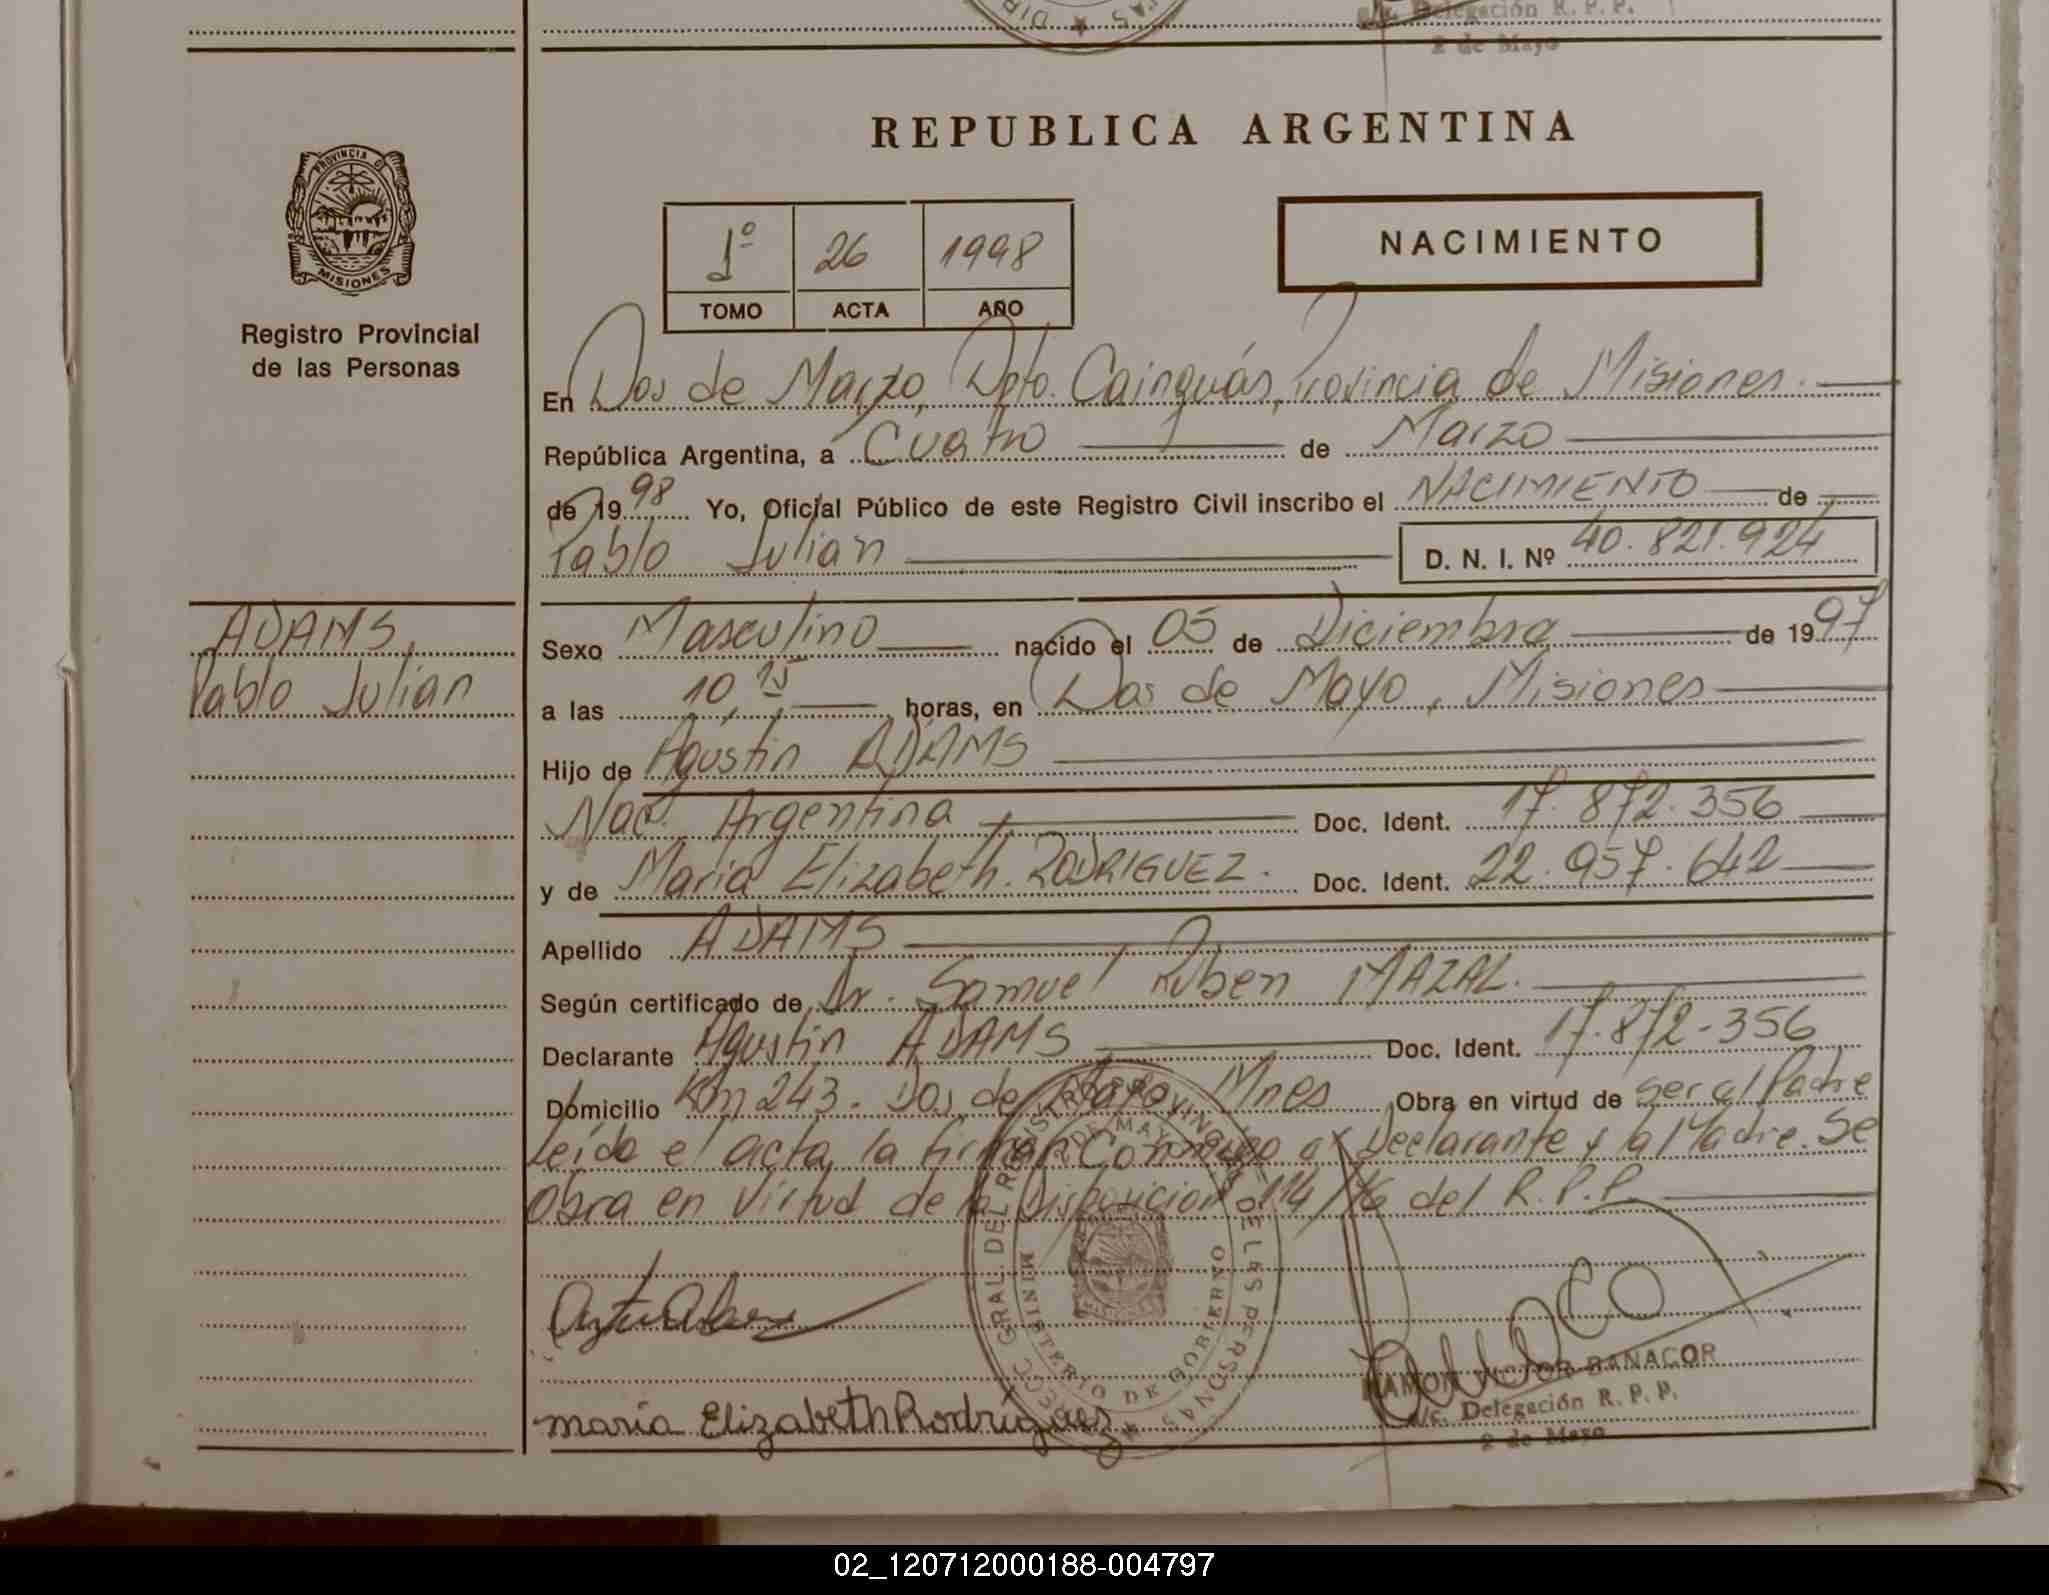 Delegación R. P. P.
2 de Mayo
REPUBLICA ARGENTINA
PROVINCIA DE
MISIONES
Registro Provincial
de las Personas
1º 26 1998
TOMO ACTA AÑO
NACIMIENTO
En Dos de Marzo, Dpto. Cainguás, Provincia de Misiones.
República Argentina, a Cuatro de Marzo
de 1998 Yo, Oficial Público de este Registro Civil inscribo el NACIMIENTO de
Pablo Julian D. N. I. Nº 40.821.924
ADAMS,
Pablo Julian
Sexo Masculino nacido el 05 de Diciembre de 1997
a las 10,15 horas, en Dos de Mayo, Misiones
Hijo de Agustin ADAMS
Nac. Argentina Doc. Ident. 17.872.356
y de Maria Elizabeth RODRIGUEZ. Doc. Ident. 22.957.642
Apellido ADAMS
Según certificado de Dr. Samuel Ruben MAZAL.
Declarante Agustin ADAMS Doc. Ident. 17.872-356
Domicilio Km 243. Dos de Mayo, Mnes Obra en virtud de ser el Padre
Leída el acta, la firman Conmigo el Declarante y la Madre. Se
Obra en Virtud de la Disposicion 114/76 del R.P.P.
DIRECC. GRAL. DEL REGISTRO PROVINCIAL DE LAS PERSONAS
MINISTERIO DE GOBIERNO
maría Elizabeth Rodríguez
RAMON VICTOR BANACOR
a/c. Delegación R. P. P.
2 de Mayo
02_120712000188-004797